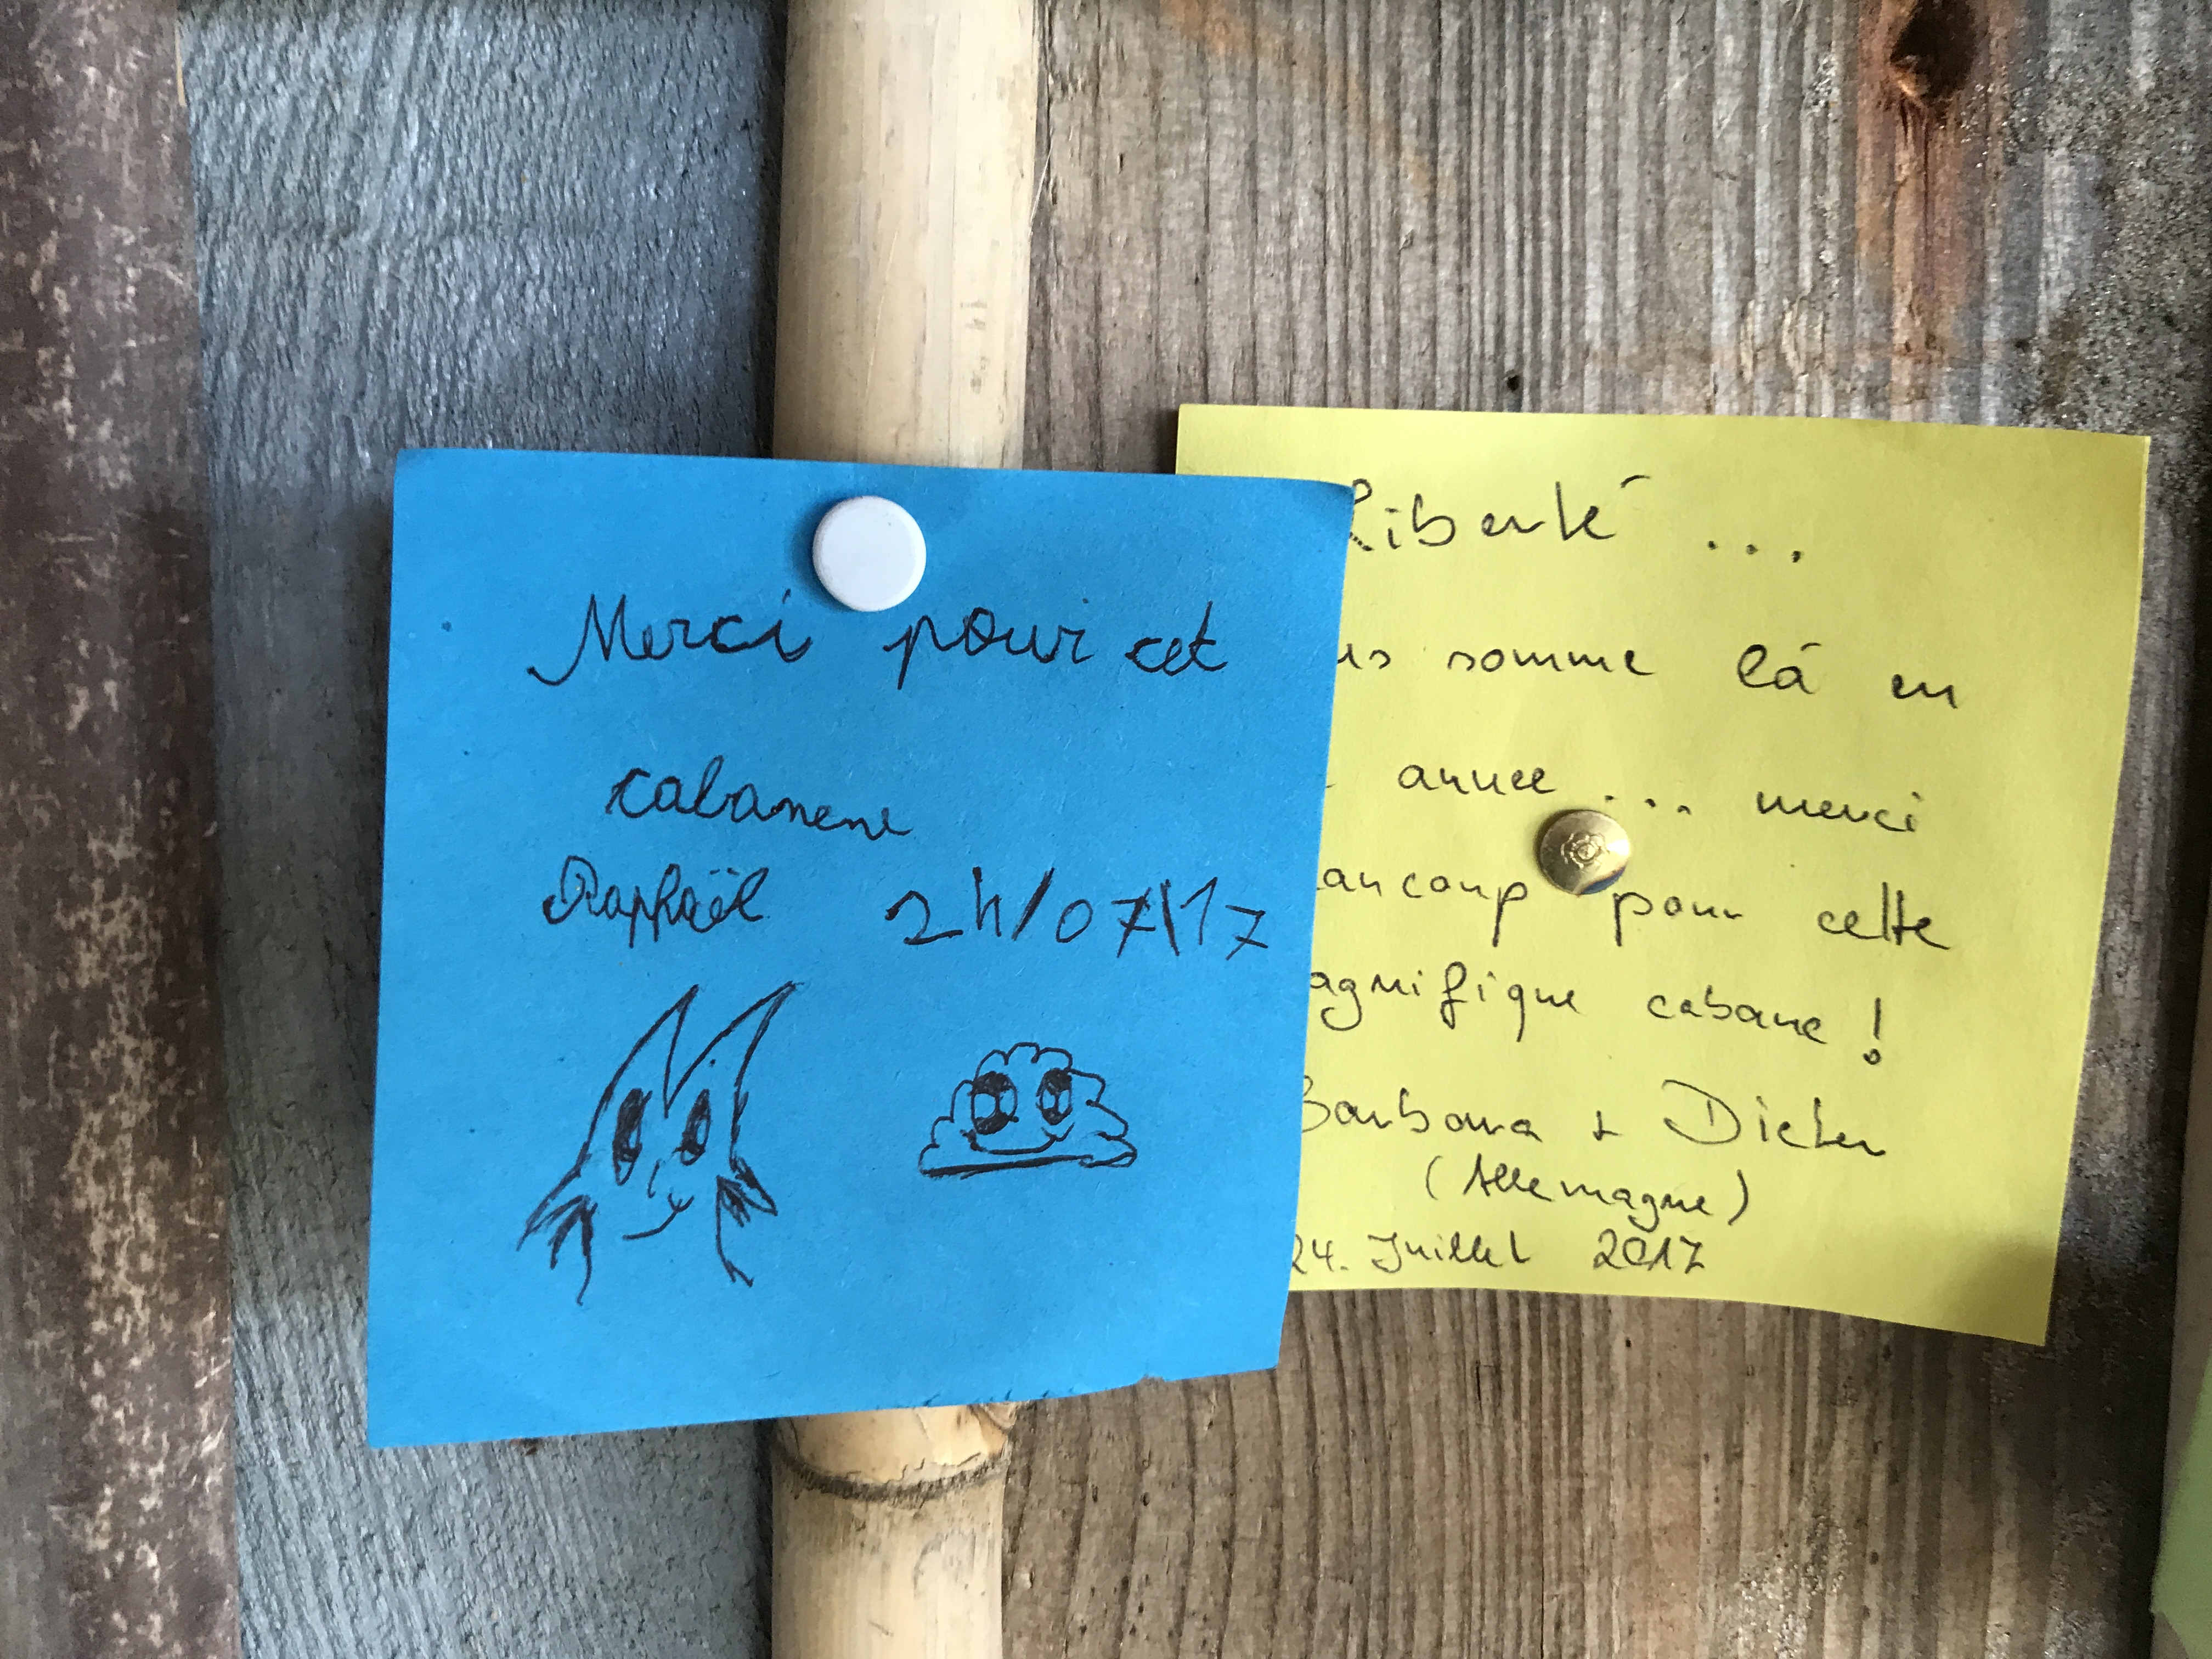 Merci pour cet
cabanene
Raphaël 24/07\17
Liberté ...
us somme là en
année ... merci
aucoup pour cette
agnifique cabane !
Barbara + Dieter
(Allemagne)
24. Juillet 2017